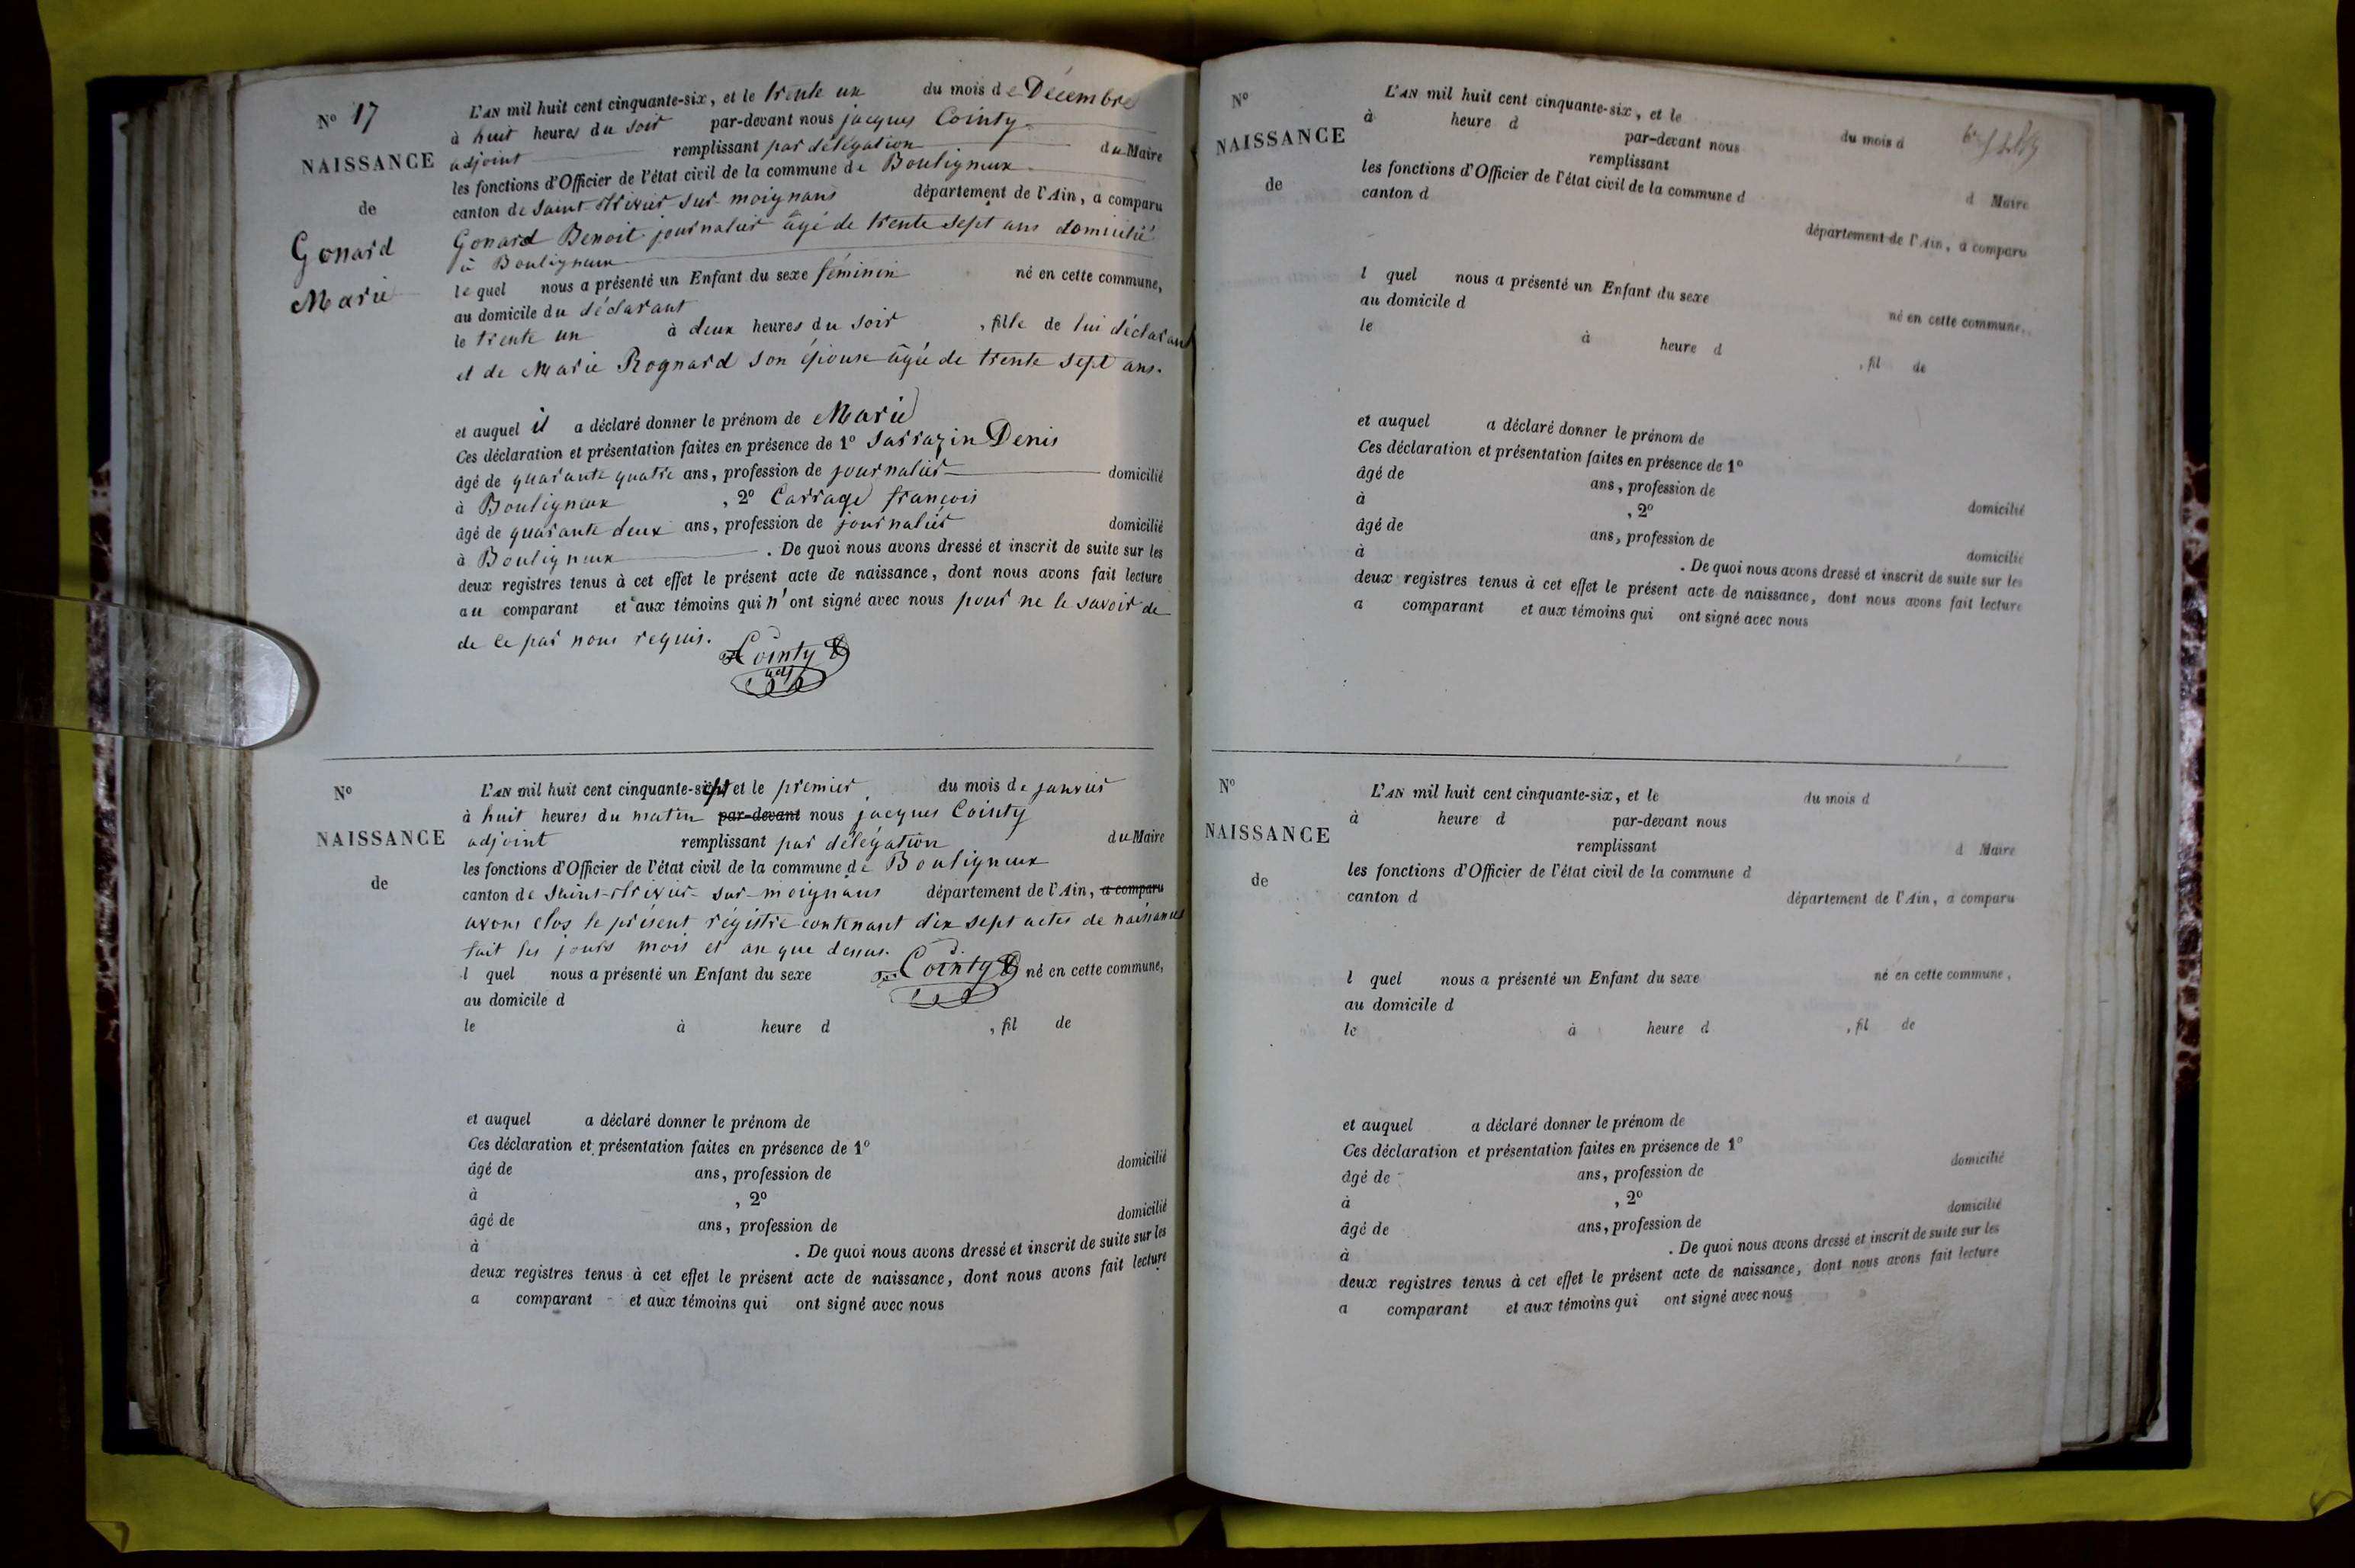 N° 17
NAISSANCE
de
Gonard
Marie
L'AN mil huit cent cinquante-six, et le trente un du mois de Décembre
à huit heures du soir par-devant nous jacques Cointy
adjoint remplissant par délégation du Maire
les fonctions d'Officier de l'état civil de la commune de Bouligneux
canton de Saint-trivier sur moignans département de l'Ain, a comparu
Gonard Benoit journalier âgé de trente sept ans domicilié
à Bouligneux
lequel nous a présenté un Enfant du sexe féminin né en cette commune,
au domicile du déclarant
le trente un à deux heures du soir , fille de lui déclarant
et de Marie Rognard son épouse âgée de trente sept ans.
et auquel il a déclaré donner le prénom de Marie
Ces déclaration et présentation faites en présence de 1° Sarrazin Denis
âgé de quarante quatre ans, profession de journalier domicilié
à Bouligneux , 2° Carrage françois
âgé de quarante deux ans, profession de journalier domicilié
à Bouligneux . De quoi nous avons dressé et inscrit de suite sur les
deux registres tenus à cet effet le présent acte de naissance, dont nous avons fait lecture
au comparant et aux témoins qui n'ont signé avec nous pour ne le savoir de
de ce par nous requis.
Cointy
adj
N°
NAISSANCE
de
L'AN mil huit cent cinquante-sept et le premier du mois de janvier
à huit heures du matin par-devant nous jacques Cointy
adjoint remplissant par délégation du Maire
les fonctions d'Officier de l'état civil de la commune de Bouligneux
canton de Saint-trivier sur moignans département de l'Ain, a comparu
avons clos le présent régistre contenant dix sept actes de naissances
fait les jours mois et an que dessus.
Cointy
l quel nous a présenté un Enfant du sexe né en cette commune,
au domicile d
le à heure d , fil de
et auquel a déclaré donner le prénom de
Ces déclaration et présentation faites en présence de 1°
âgé de ans, profession de domicilié
à , 2°
âgé de ans, profession de domicilié
à . De quoi nous avons dressé et inscrit de suite sur les
deux registres tenus à cet effet le présent acte de naissance, dont nous avons fait lecture
a comparant et aux témoins qui ont signé avec nous
N°
NAISSANCE
de
L'AN mil huit cent cinquante-six, et le du mois d
à heure d par-devant nous
remplissant d Maire
les fonctions d'Officier de l'état civil de la commune d
canton d département de l'Ain, a comparu
l quel nous a présenté un Enfant du sexe né en cette commune,
au domicile d
le à heure d , fil de
et auquel a déclaré donner le prénom de
Ces déclaration et présentation faites en présence de 1°
âgé de ans, profession de domicilié
à , 2°
âgé de ans, profession de domicilié
à . De quoi nous avons dressé et inscrit de suite sur les
deux registres tenus à cet effet le présent acte de naissance, dont nous avons fait lecture
a comparant et aux témoins qui ont signé avec nous
N°
NAISSANCE
de
L'AN mil huit cent cinquante-six, et le du mois d
à heure d par-devant nous
remplissant d Maire
les fonctions d'Officier de l'état civil de la commune d
canton d département de l'Ain, a comparu
l quel nous a présenté un Enfant du sexe né en cette commune,
au domicile d
le à heure d , fil de
et auquel a déclaré donner le prénom de
Ces déclaration et présentation faites en présence de 1°
âgé de ans, profession de domicilié
à , 2°
âgé de ans, profession de domicilié
à . De quoi nous avons dressé et inscrit de suite sur les
deux registres tenus à cet effet le présent acte de naissance, dont nous avons fait lecture
a comparant et aux témoins qui ont signé avec nous